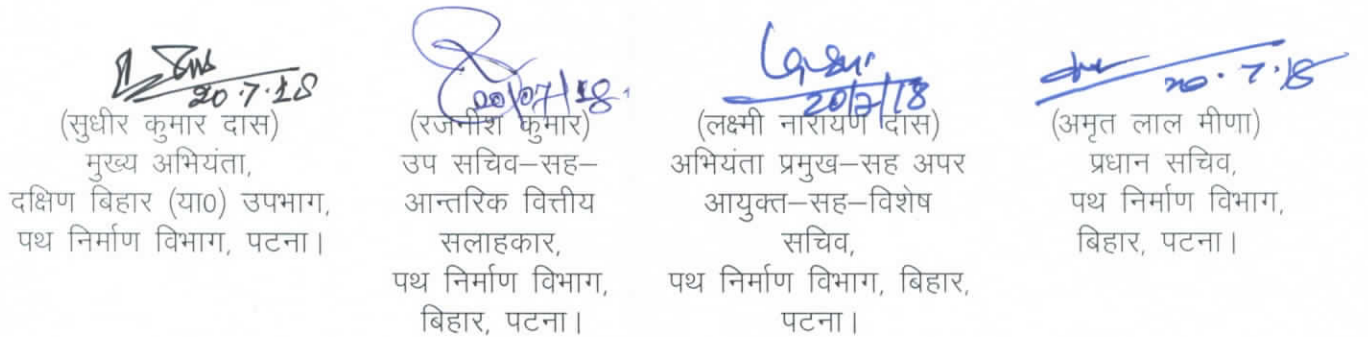 20.7.18
(सुधीर कुमार दास)
मुख्य अभियंता,
दक्षिण बिहार (या0) उपभाग,
पथ निर्माण विभाग, पटना।
20/07/18
(रजनीश कुमार)
उप सचिव–सह–
आन्तरिक वित्तीय
सलाहकार,
पथ निर्माण विभाग,
बिहार, पटना।
20/7/18
(लक्ष्मी नारायण दास)
अभियंता प्रमुख–सह अपर
आयुक्त–सह–विशेष
सचिव,
पथ निर्माण विभाग, बिहार,
पटना।
20.7.18
(अमृत लाल मीणा)
प्रधान सचिव,
पथ निर्माण विभाग,
बिहार, पटना।